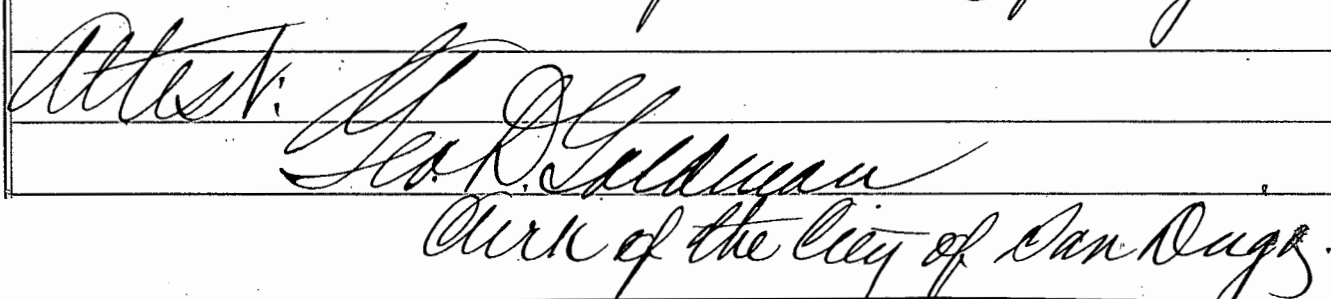 Attest:
Geo. D. Goldman
Clerk of the City of San Diego.